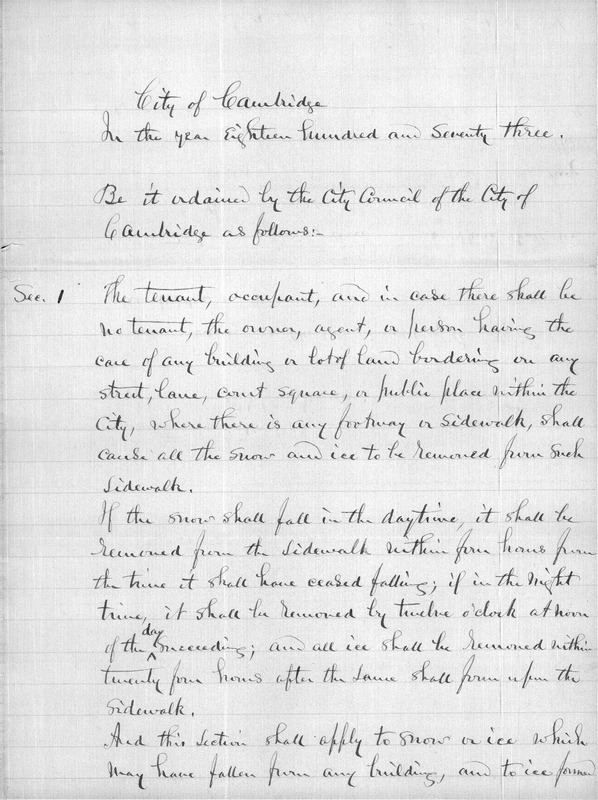 City of Cambridge
In the year Eighteen hundred and Seventy three.
Be it ordained by the City Council of the City of
Cambridge as follows:-
Sec. 1 The tenant, occupant, and in case there shall be
no tenant, the owner, agent, or person having the
care of any building or lot of land bordering on any
street, lane, court square, or public place within the
City, where there is any footway or sidewalk, shall
cause all the snow and ice to be removed from such
sidewalk.
If the snow shall fall in the daytime, it shall be
removed from the sidewalk within four hours from
the time it shall have ceased falling; if in the night
time, it shall be removed by twelve o'clock at noon
of the day succeeding; and all ice shall be removed within
twenty four hours after the same shall form upon the
sidewalk.
And this section shall apply to snow or ice which
may have fallen from any building, and to ice formed